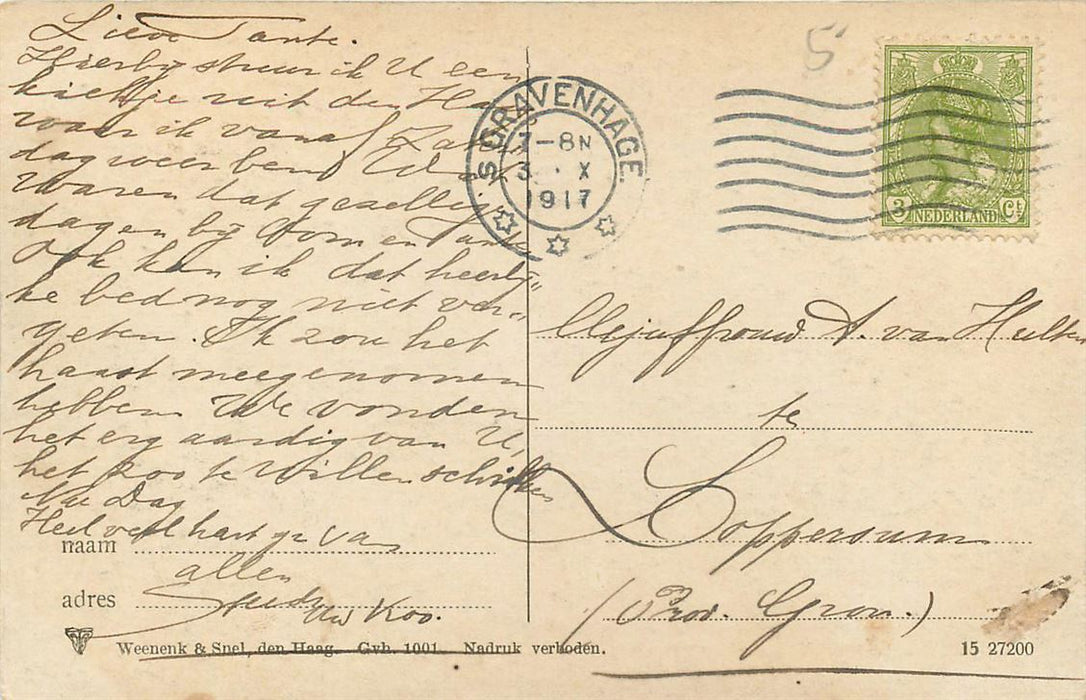 Lieve Tante.
Hierbij stuur ik U een
kiekje uit den Ha
waar ik vanaf Zater„
dag weer ben. Wij
waren dat gezellige
dagen bij Oom en Tante
Ook kan ik dat heerlij„
ke bed nog niet ver„
geten. Ik zou het
haast meegenomen
hebben. We vonden
het erg aardig van U,
het zoo te willen schikken
Nu Dag
Heel veel hart. gr. van
allen
Uw Koo.
naam
adres
5
'S GRAVENHAGE
7-8N
3 . X
1917
3 NEDERLAND Ct
Mejuffrouw A. van Hulten
te
Loppersum
(Prov. Gron.)
Weenenk & Snel, den Haag. Gvh. 1001. Nadruk verboden.
15 27200